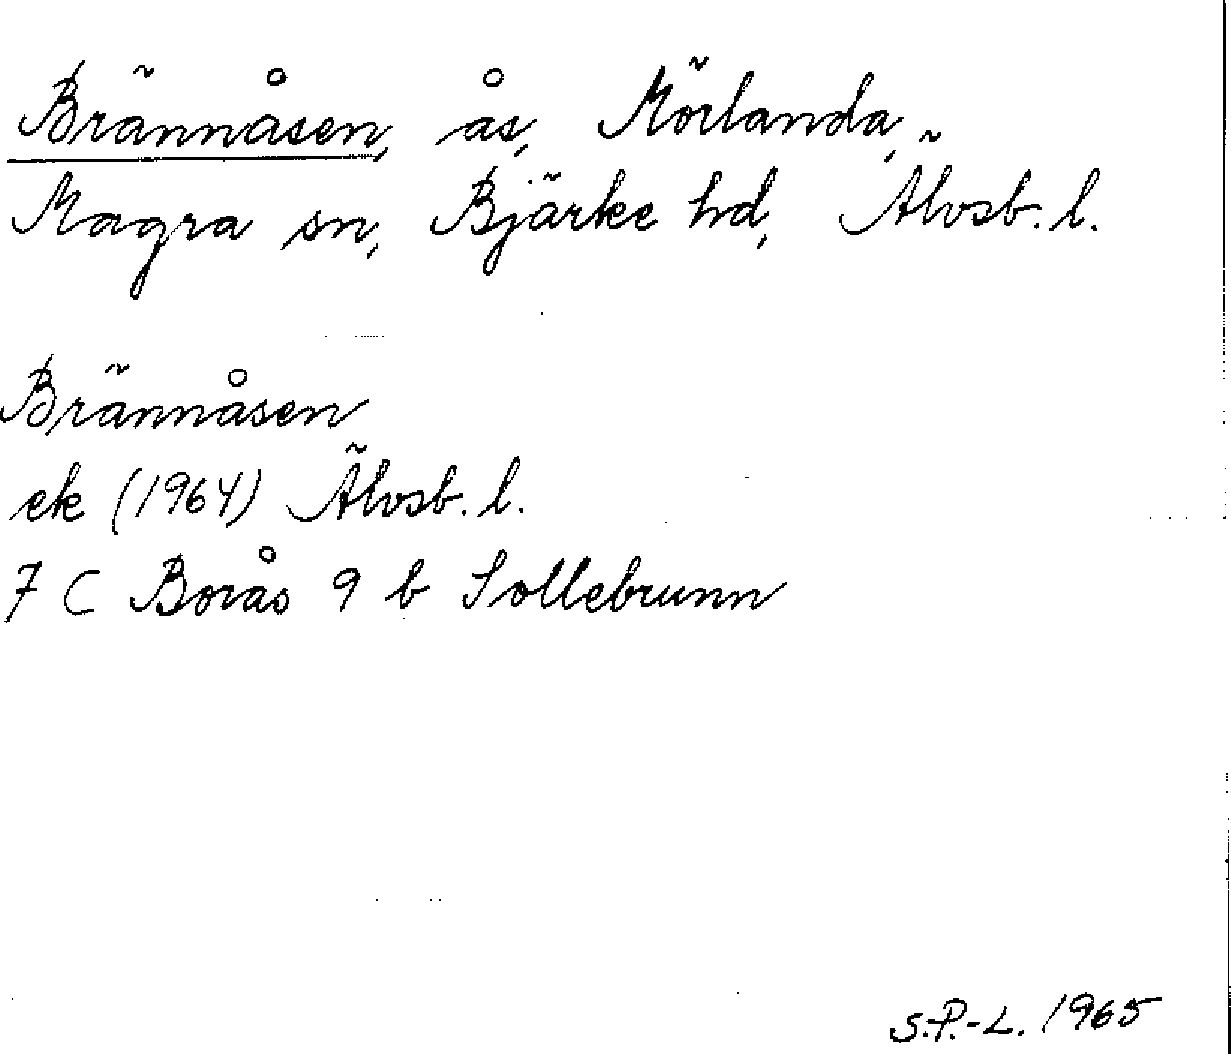 Brännåsen, ås, Mörlanda,
Magra sn, Bjärke hd, Älvsb. l.
Brännåsen
ek (1964) Älvsb. l.
7 C Borås 9 b Sollebrunn
S.P.-L. 1965